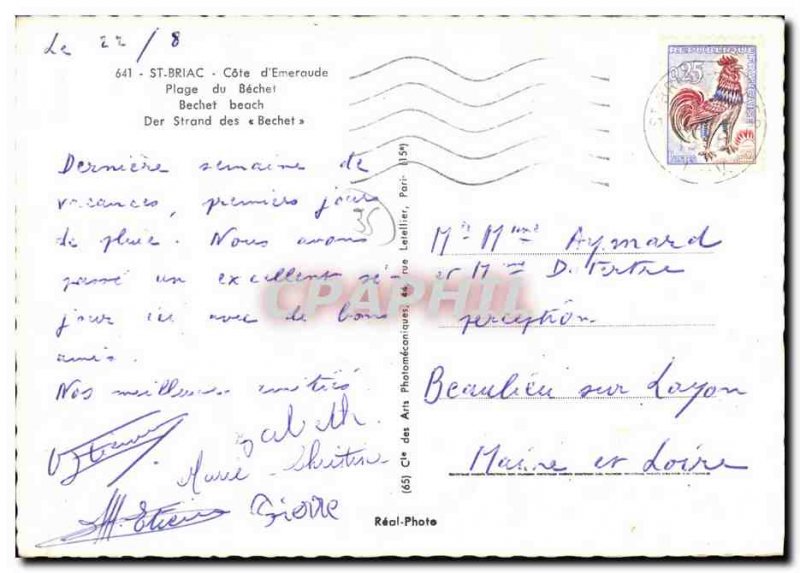 Le 22/8
641 - ST-BRIAC - Côte d'Emeraude
Plage du Béchet
Bechet beach
Der Strand des « Bechet »
Dernière semaine de
vacances, premiers jours
de pluie. Nous avons
passé un excellent sé-
jour ici avec de bons
amis.
Nos meilleures amitiés
Marie Christine
Pierre
35
(65) Cie des Arts Photomécaniques, 44 rue Letellier, Paris (15e)
Réal-Photo
REPUBLIQUE FRANÇAISE
0,25
POSTES
Mr Mme Aymard
et Mme D. Tertre
perception
Beaulieu sur Layon
Maine et Loire
CPAPHIL